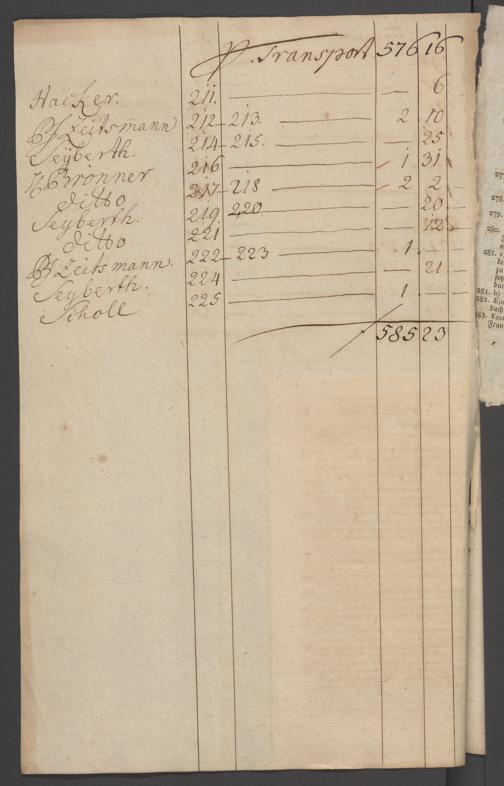 Transport 576 16
Hacker. 211. — 6
PJ Zeitsmann 212 213. 2 10
Seyberth. 214 215. — 25
H Brönner 216 1 31
ditto 217 218 2 2
Seyberth. 219 220 — 20
ditto 221 — 12
PJ Zeitsmann. 222 223 1 —
Seyberth. 224 — 21
Scholl 225 1 —
585 23
278.
279.
280.
281.
281. b)
282.